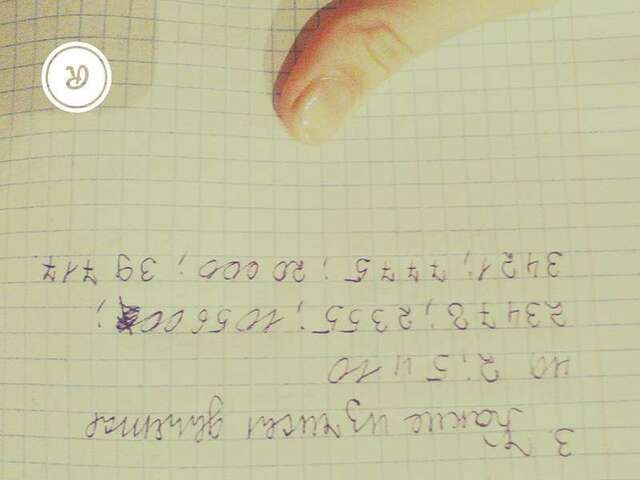 3. Какие из чисел делятся
на 2; 5 и 10
23478; 2355; 105600;
3421; 7775; 20000; 39717.
R